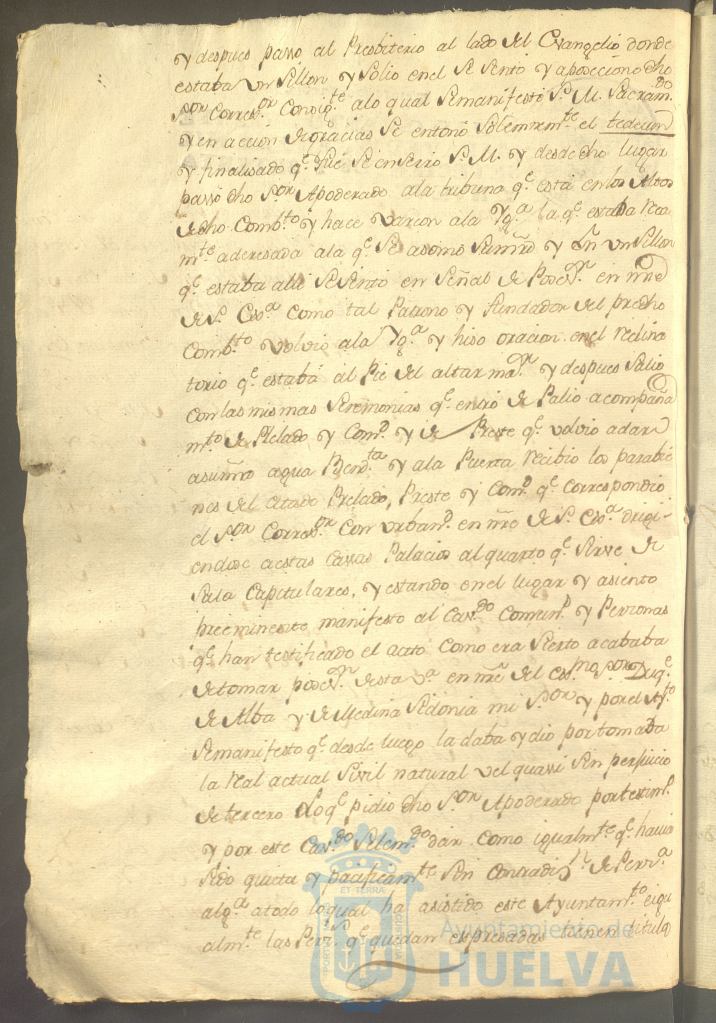 y despues passo al Presbiterio al lado del Evangelio donde
estaba vn Sillon y Solio en el Se Sento y aposeciono dho
S.or Corres.or Consig.te alo qual Semanifestó S. M. Sacram.do
y en accion de gracias Se entonó Solemnem.te el tedeum
y finalisado q.e fué Se enserro S. M. y desde dho lugar
passó dho S.or Apoderado ala tribuna q.e está en los Altos
de dho Comb.to y hace varcon ala Yg.a la q.e estaba Rea
m.te aderesada ala q.e Se asomó Sumrd y En vn Sillon
q.e estaba alli Se Sento en Señas de Poses.n en nre
de S. Exs.a como tal Patrono y fundador del predho
Comb.to volvio ala Yg.a y hiso oracion en el reclina
torio q.e estaba al Pie del altar ma.r y despues Salio
con las mismas Seremonias q.e entró de Palio acompaña
m.to de Prelado y Com.d y de Preste q.e volvio adar
asumrd agua Bend.ta y ala Puerta recibio los parabie
nes del citado Prelado, Preste y Com.d q.e correspondió
el S.or Corres.or con vrban.d en nre de S. Exs.a dirigi-
endose a estas Cassas Palacio al quarto q.e Sirve de
Sala Capitulares, y estando en el lugar y asiento
preeminente manifesto al Cav.do Comun.d y Personas
q.e han testificado el acto como era Sierto acababa
de tomar poses.n desta V.a en nre del Exs.mo S.or Duq.e
de Alba y de Medina Sidonia mi S.or y por el Ay.to
Semanifesto q.e desde luego la daba y dio por tomada
la real actual Sivil natural vel quassi Sin perjuicio
de tercero Lo q.e pidio dho S.or Apoderado por testim.o
y por este Cav.do Selem.do dar como igualm.te q.e havia
Sido quieta y pacificam.te Sin contradis.n de Pers.a
alg.a atodo loqual ha asistido este Ayuntam.to e igu
alm.te las Pers.s q.e quedan expresadas tienen titulo
ET TERRA
Ayuntamiento de
HUELVA